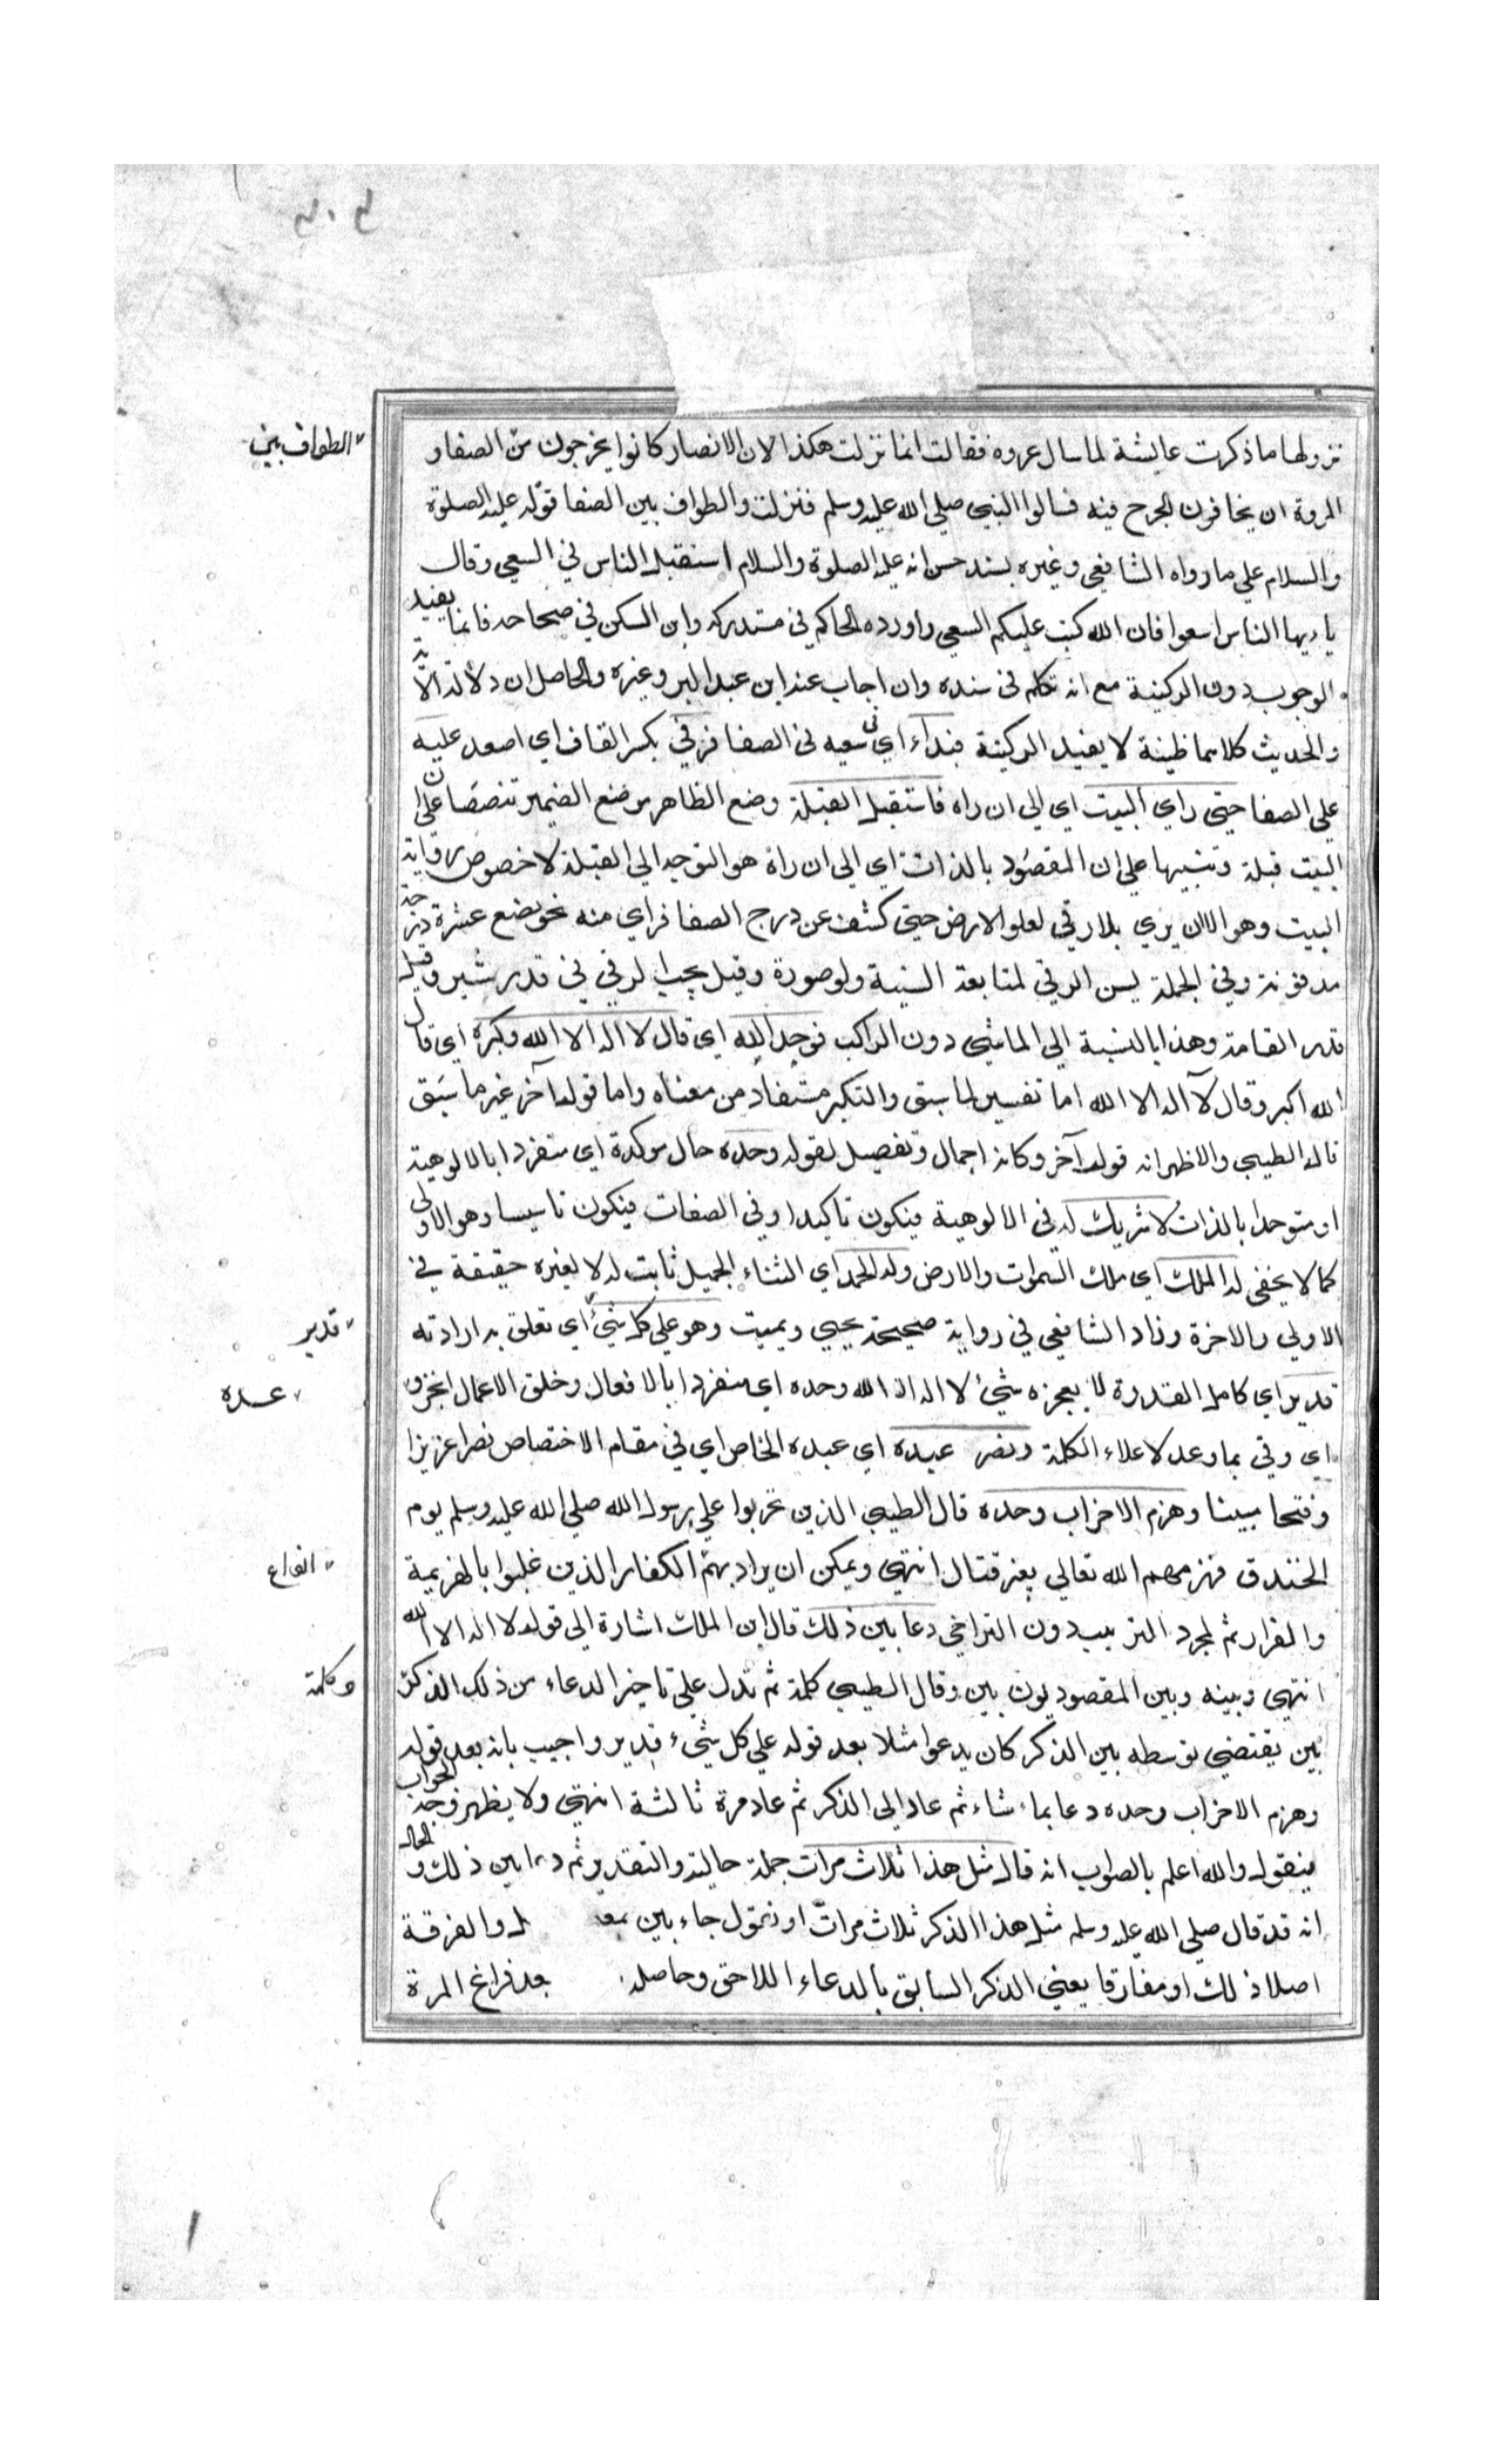 نزولها ما ذكرت عايشة لما سال عروه فقالت انما نزلت هكذا لان الانصار كانوا يخرجون من الصفا و
الطواف بين
المروة ان يخافون الجرح فيه فسالوا النبي صلي الله عليه وسلم فنزلت والطواف بين الصفا قوله عليه الصلوة
والسلام علي ما رواه الشافعي وغيره بسند حسن انه عليه الصلوة والسلام استقبل الناس في السعي وقال
يا ايها الناس اسعوا فان الله كتب عليكم السعي واورده الحاكم في مستدركه وابن السكن في صحاحه فانما يفيد
الوجوب دون الركنية مع انه تكلم في سنده وان اجاب عند ابن عبد البر وغيره والحاصل ان دلالة الآية
والحديث كلاهما ظنية لا يفيد الركنية فبداء اي في سعيه في الصفا فرقي بكسر القاف اي اصعد عليه
علي الصفا حتي راي البيت اي الي ان راه فاستقبل القبلة وضع الظاهر موضع الضمير تنصصا علي ان
البيت قبلة وتنبيها علي ان المقصود بالذات اي الي ان راه هو التوجه الي القبلة لا خصوص رواية
البيت وهو الان يري بلا رقي لعلو الارض حتي كشف عن درج الصفا فراي منه نحو بضع عشرة درجة
مدفونة وفي الجملة يسن الرقي لمتابعة السنية ولو صورة وقيل يجب الرقي في قدر شبر وقيل
قدر القامة وهذا بالنسبة الي الماشي دون الراكب فوحد الله اي قال لا اله الا الله وكبره اي قال
الله اكبر وقال لا آله الا الله اما تفسير لما سبق والتكبير مستفاد من معناه واما قول آخر غير ما سبق
قاله الطيبي والاظهر انه قول آخر وكانه اجمال وتفصيل لقوله وحده حال موكدة اي منفردا بالالوهية
او متوحدا بالذات لا شريك له في الالوهية فيكون تاكيدا وفي الصفات فيكون تاسيسا وهو الاولي
كما لا يخفي له الملك اي ملك السموات والارض وله الحمد اي الثناء الجميل ثابت له لا لغيره حقيقة في
الاولي والاخرة وزاد الشافعي في رواية صحيحة يحيي ويميت وهو علي كل شيئ اي تعلق به ارادته
قدير
قدير اي كامل القدرة لا يعجزه شيئ لا اله الا الله وحده اي منفردا بالافعال وخلق الاعمال انجز و
عده
اي وفي بما وعد لاعلاء الكلمة ونصر عبده اي عبده الخاص اي في مقام الاختصاص نصرا عزيزا
وفتحا مبينا وهزم الاحزاب وحده قال الطيبي الذين تحزبوا علي رسول الله صلي الله عليه وسلم يوم
الخندق فهزمهم الله تعالي بغير قتال انتهي ويمكن ان يراد بهم الكفار الذين غلبوا بالهزيمة
والفرار ثم لمجرد الترتيب دون التراخي دعا بين ذلك قال ابن الملك اشارة الي قوله لا اله الا الله
انتهي وبينه وبين المقصود بون بين وقال الطيبي كلمة ثم تدل علي تاخير الدعاء من ذلك الذكر
وكلمة
بين يقتضي توسطه بين الذكر كان يدعوا مثلا بعد قوله علي كل شيء قدير واجيب بانه بعد قوله
وهزم الاحزاب وحده دعا بما شاء ثم عاد الي الذكر ثم عاد مرة ثالثة انتهي ولا يظهر وجه الجواب
فيقول والله اعلم بالصواب انه قال مثل هذا ثلاث مرات جملة حالية والتقدير ثم دعا بين ذلك والحال
انه قد قال صلي الله عليه وسلم مثل هذا الذكر ثلاث مرات او نقول جاء بين والفرقة
اصلا ذلك او مفارقا يعني الذكر السابق بالدعاء اللاحق وحاصله بعد فراغ المرة